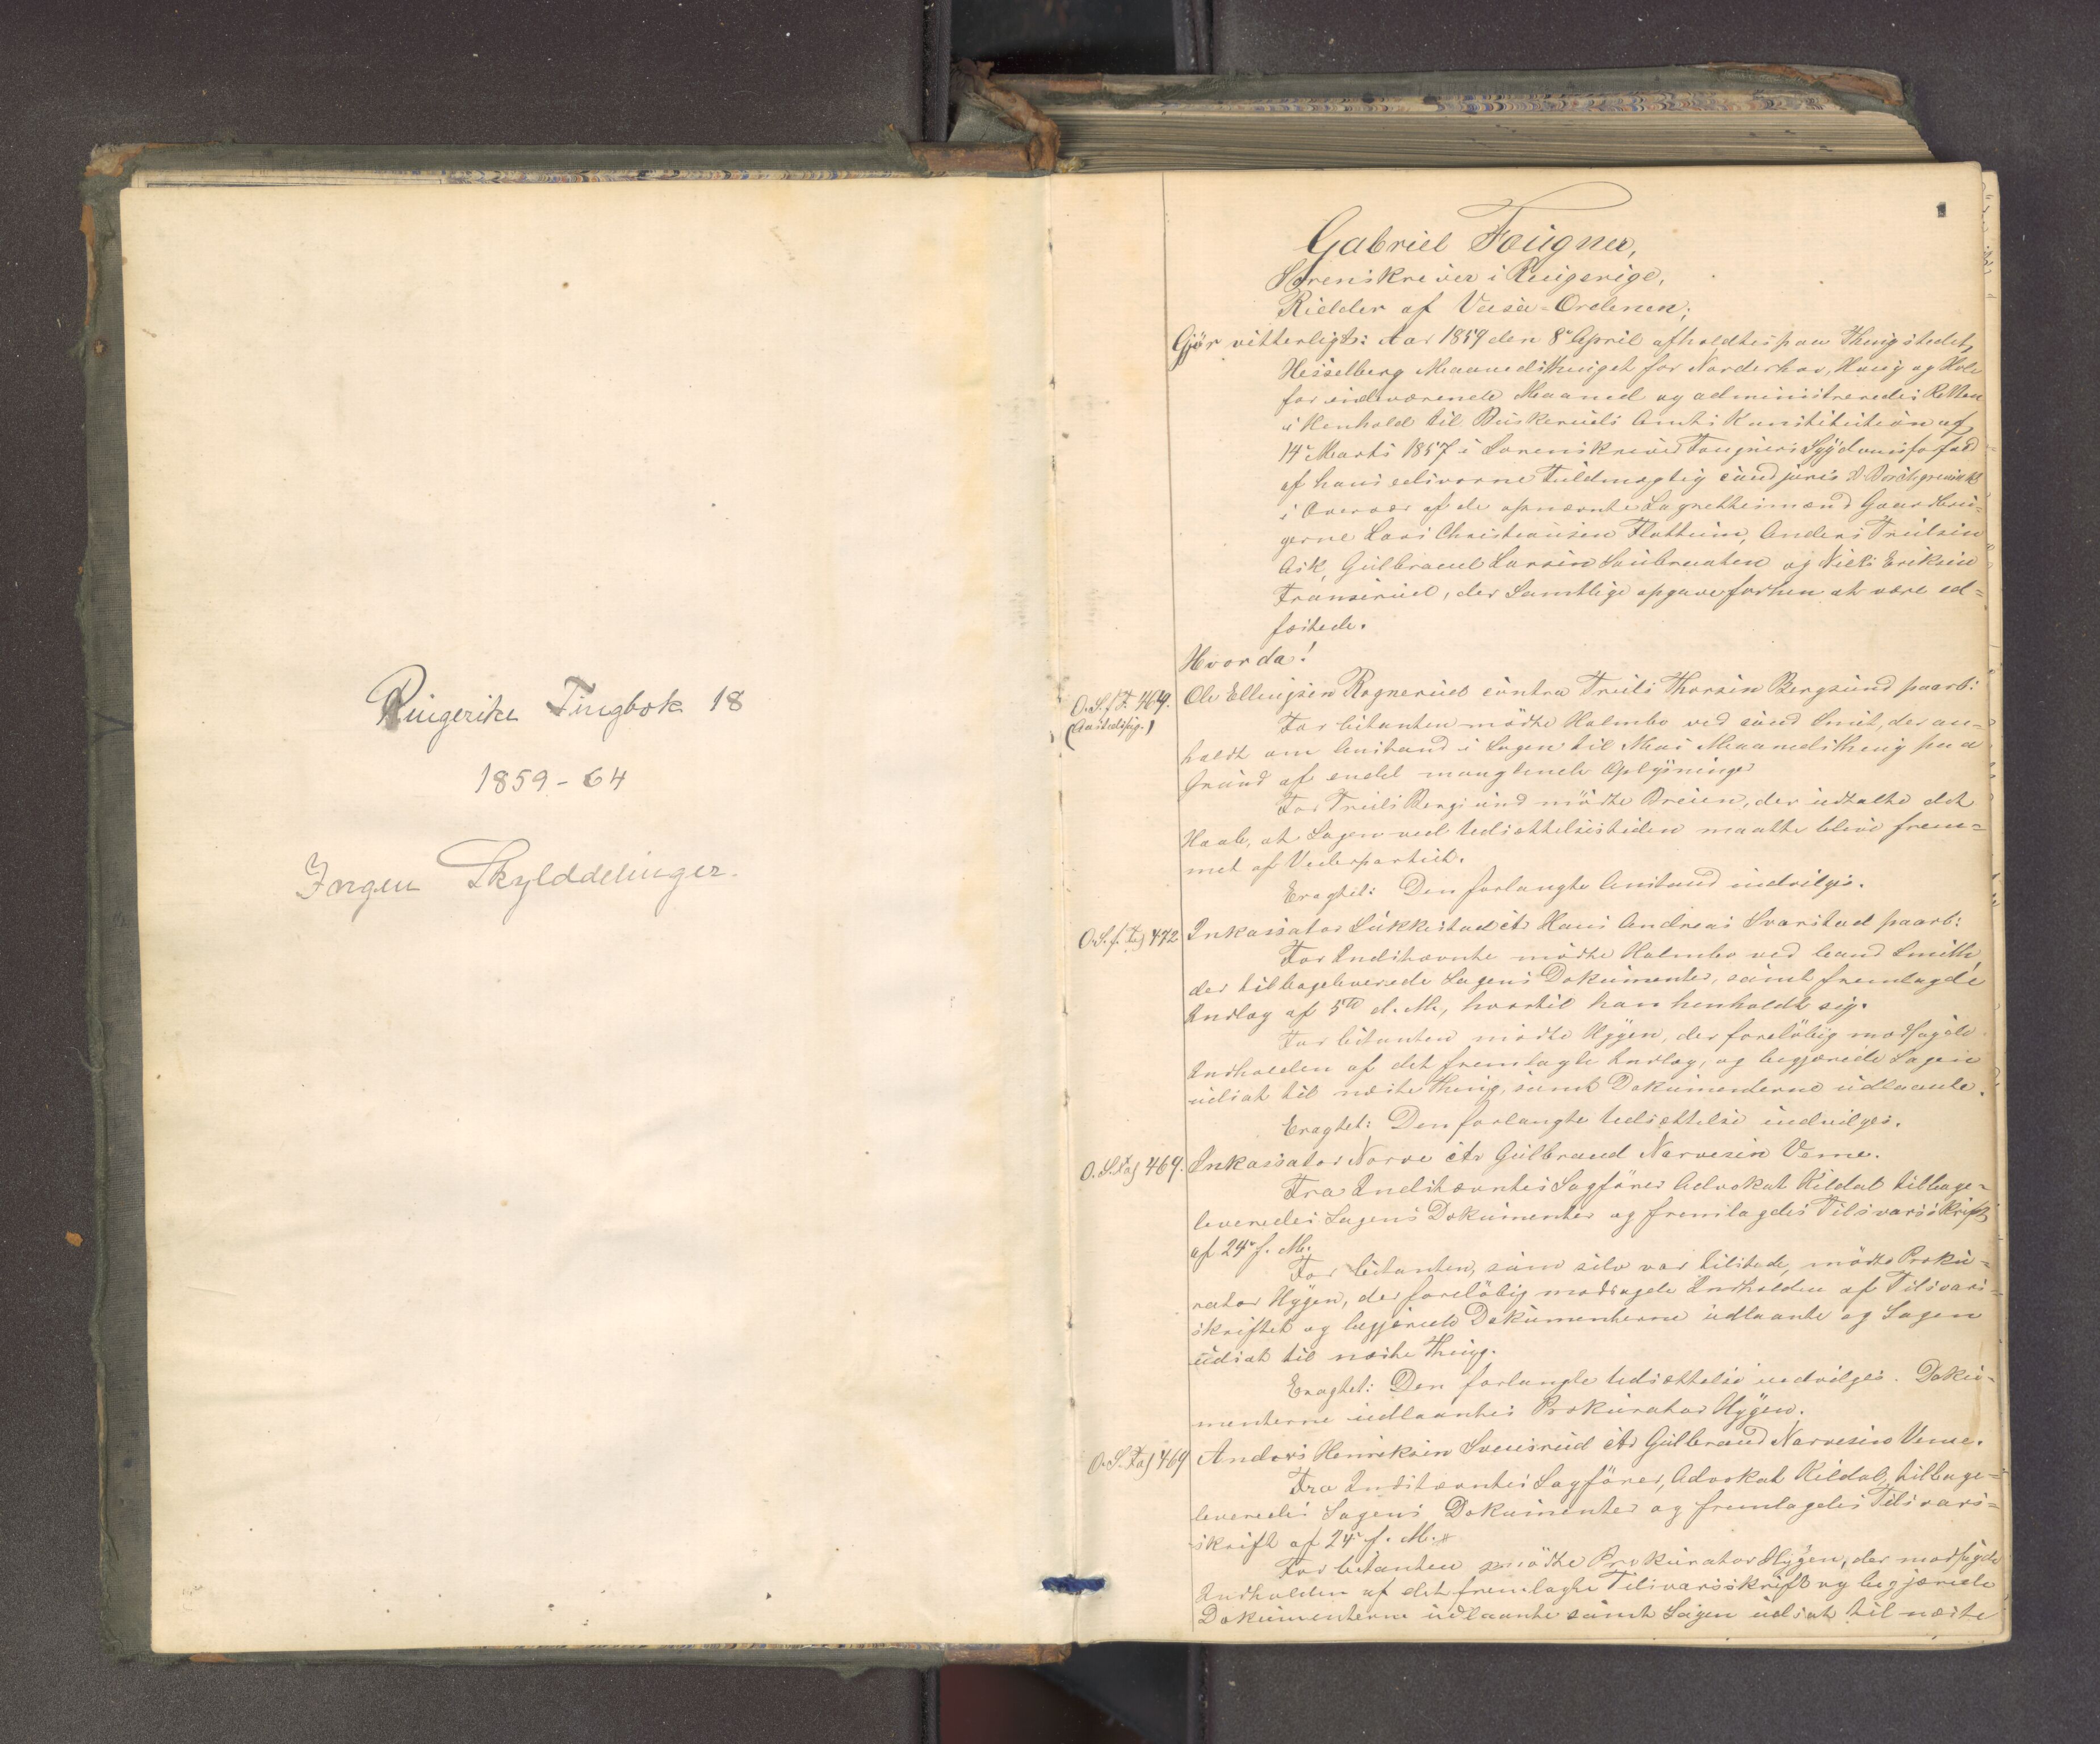 Ringerike Tingbok 18
1859-64
Ingen Skylddelinger.
1
Gabriel Fougner,
Sorenskriver i Ringerige,
Ridder af Vasa-Ordenen;
Gjör vitterligt: Aar 1859 den 8de April afholdtes paa Thingstedet
Hesselberg Maanedsthinget for Norderhov, Houg og Hole
for indeværende Maaned og administreredes Retten
i Henhold til Buskeruds Amts Konstitution af
14de Marts 1857 i Sorenskriver Fougners Sygdomsforfald
af hans edsvorne Fuldmægtig cand juris
i Overvær af de opnævnte Lagrettesmænd Gaardbru-
gerne Lars Christiansen Flattum, Anders Trulsen
Ask, Gulbrand Larsen Saubraaten og Niels Eriksen
Transerud, der Samtlige opgave forhen at være ed-
fæstede.
Hvor da!
O.S.f.F. 409.
(Aastedssag.)
Ole Ellingsen Rognerud contra Truls Thorsen Bergsund paarb:
For Citanten mödte Holmbo ved cand Smit, der an-
holdt om Anstand i Sagen til Mai Maanedsthing paa
Grund af endel manglende Oplysninger
For Truls Bergsund mödte Breien, der udtalte det
Haab, at Sagen ved Udsættelsestiden maatte blive frem-
met af Vederpartiet.
Eragtet: Den forlangte Anstand indvilges.
O.S.f. Fol 472
Inkassator Lukkestad ctr Hans Andreas Svarstad paarb:
For Indstævnte mödte Holmbo ved Cand Smith,
der tilbageleverede Sagens Dokumenter, samt fremlagde
Indlæg af 5te d. M., hvortil han henholdt sig.
For Citanten mödte Hygen, der forelöbig modsagde
Indholden af det fremlagte Indlæg, og begjærede Sagen
udsat til næste Thing, samt Dokumenterne udlaante.
Eragtet: Den forlangte Udsættelse indvilges.
O.S. Fol 469.
Inkassator Norve ctr Gulbrand Narvesen Veme.
Fra Indstævntes Sagförer Advokat Kildal tilbage-
leveredes Sagens Dokumenter og fremlagdes Tilsvarsskrift
af 24de f. M.
For Citanten, som selv var tilstede, mödte Proku-
rator Hygen, der forelöbig modsagde Indholden af Tilsvars-
skriftet og begjærede Dokumenterne udlaante og Sagen
udsat til næste Thing.
Eragtet: Den forlangte Udsættelse indvilges. Doku-
menterne udlaantes Prokurator Hygen.
O.S. Fol 469
Anders Henriksen Svensrud ctr Gulbrand Narvesen Veme.
Fra Indstævntes Sagförer, Advokat Kildal, tilbage-
leveredes Sagens Dokumenter og fremlagdes Tilsvars-
skrift af 24de f. M.
For Citanten mödte Prokurator Hygen, der modsagde
Indholden af det fremlagte Tilsvarsskrift og begjærede
Dokumenterne udlaante samt Sagen udsat til næste